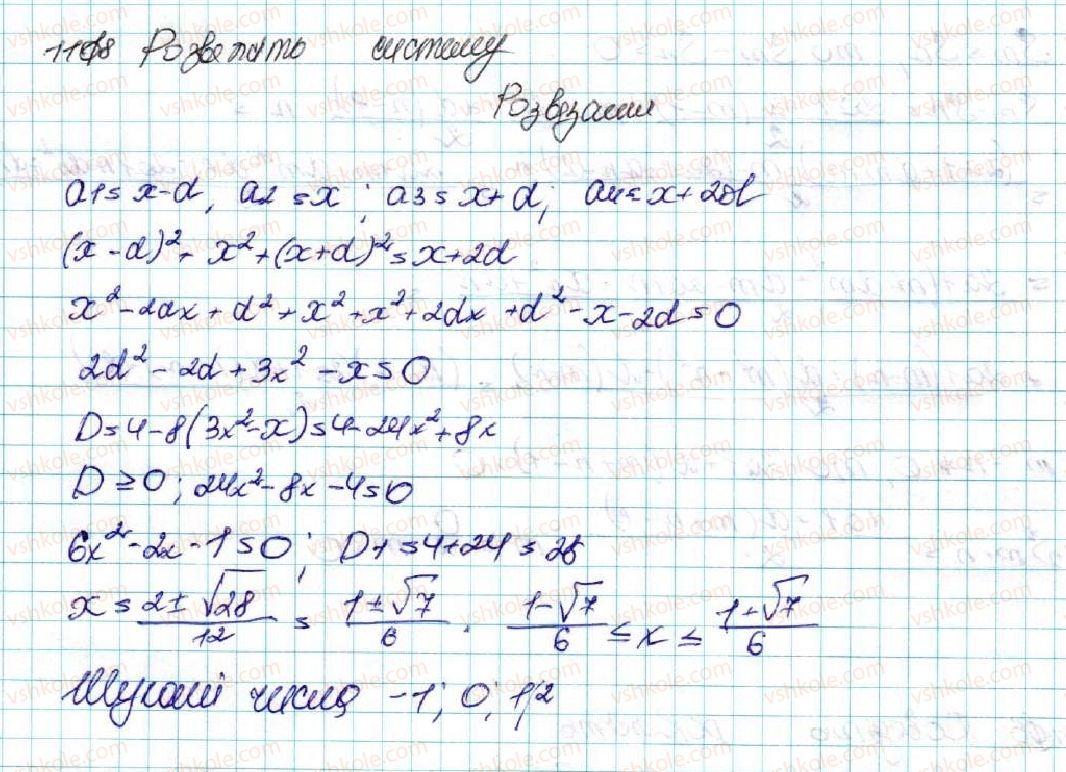 1108 Розвязать систему
Розвязання
a1 = x-d, a2 = x; a3 = x+d; a4 = x+2d
(x-d)² + x² + (x+d)² = x+2d
x² - 2dx + d² + x² + x² + 2dx + d² - x - 2d = 0
2d² - 2d + 3x² - x = 0
D = 4 - 8(3x² - x) = 4 - 24x² + 8x
D ≥ 0; 24x² - 8x - 4 = 0
6x² - 2x - 1 = 0; D1 = 4 + 24 = 28
x = (2 ± √28)/12 = (1 ± √7)/6. (1 - √7)/6 ≤ x ≤ (1 + √7)/6
Шукані числа -1; 0; 1; 2
vshkole.com